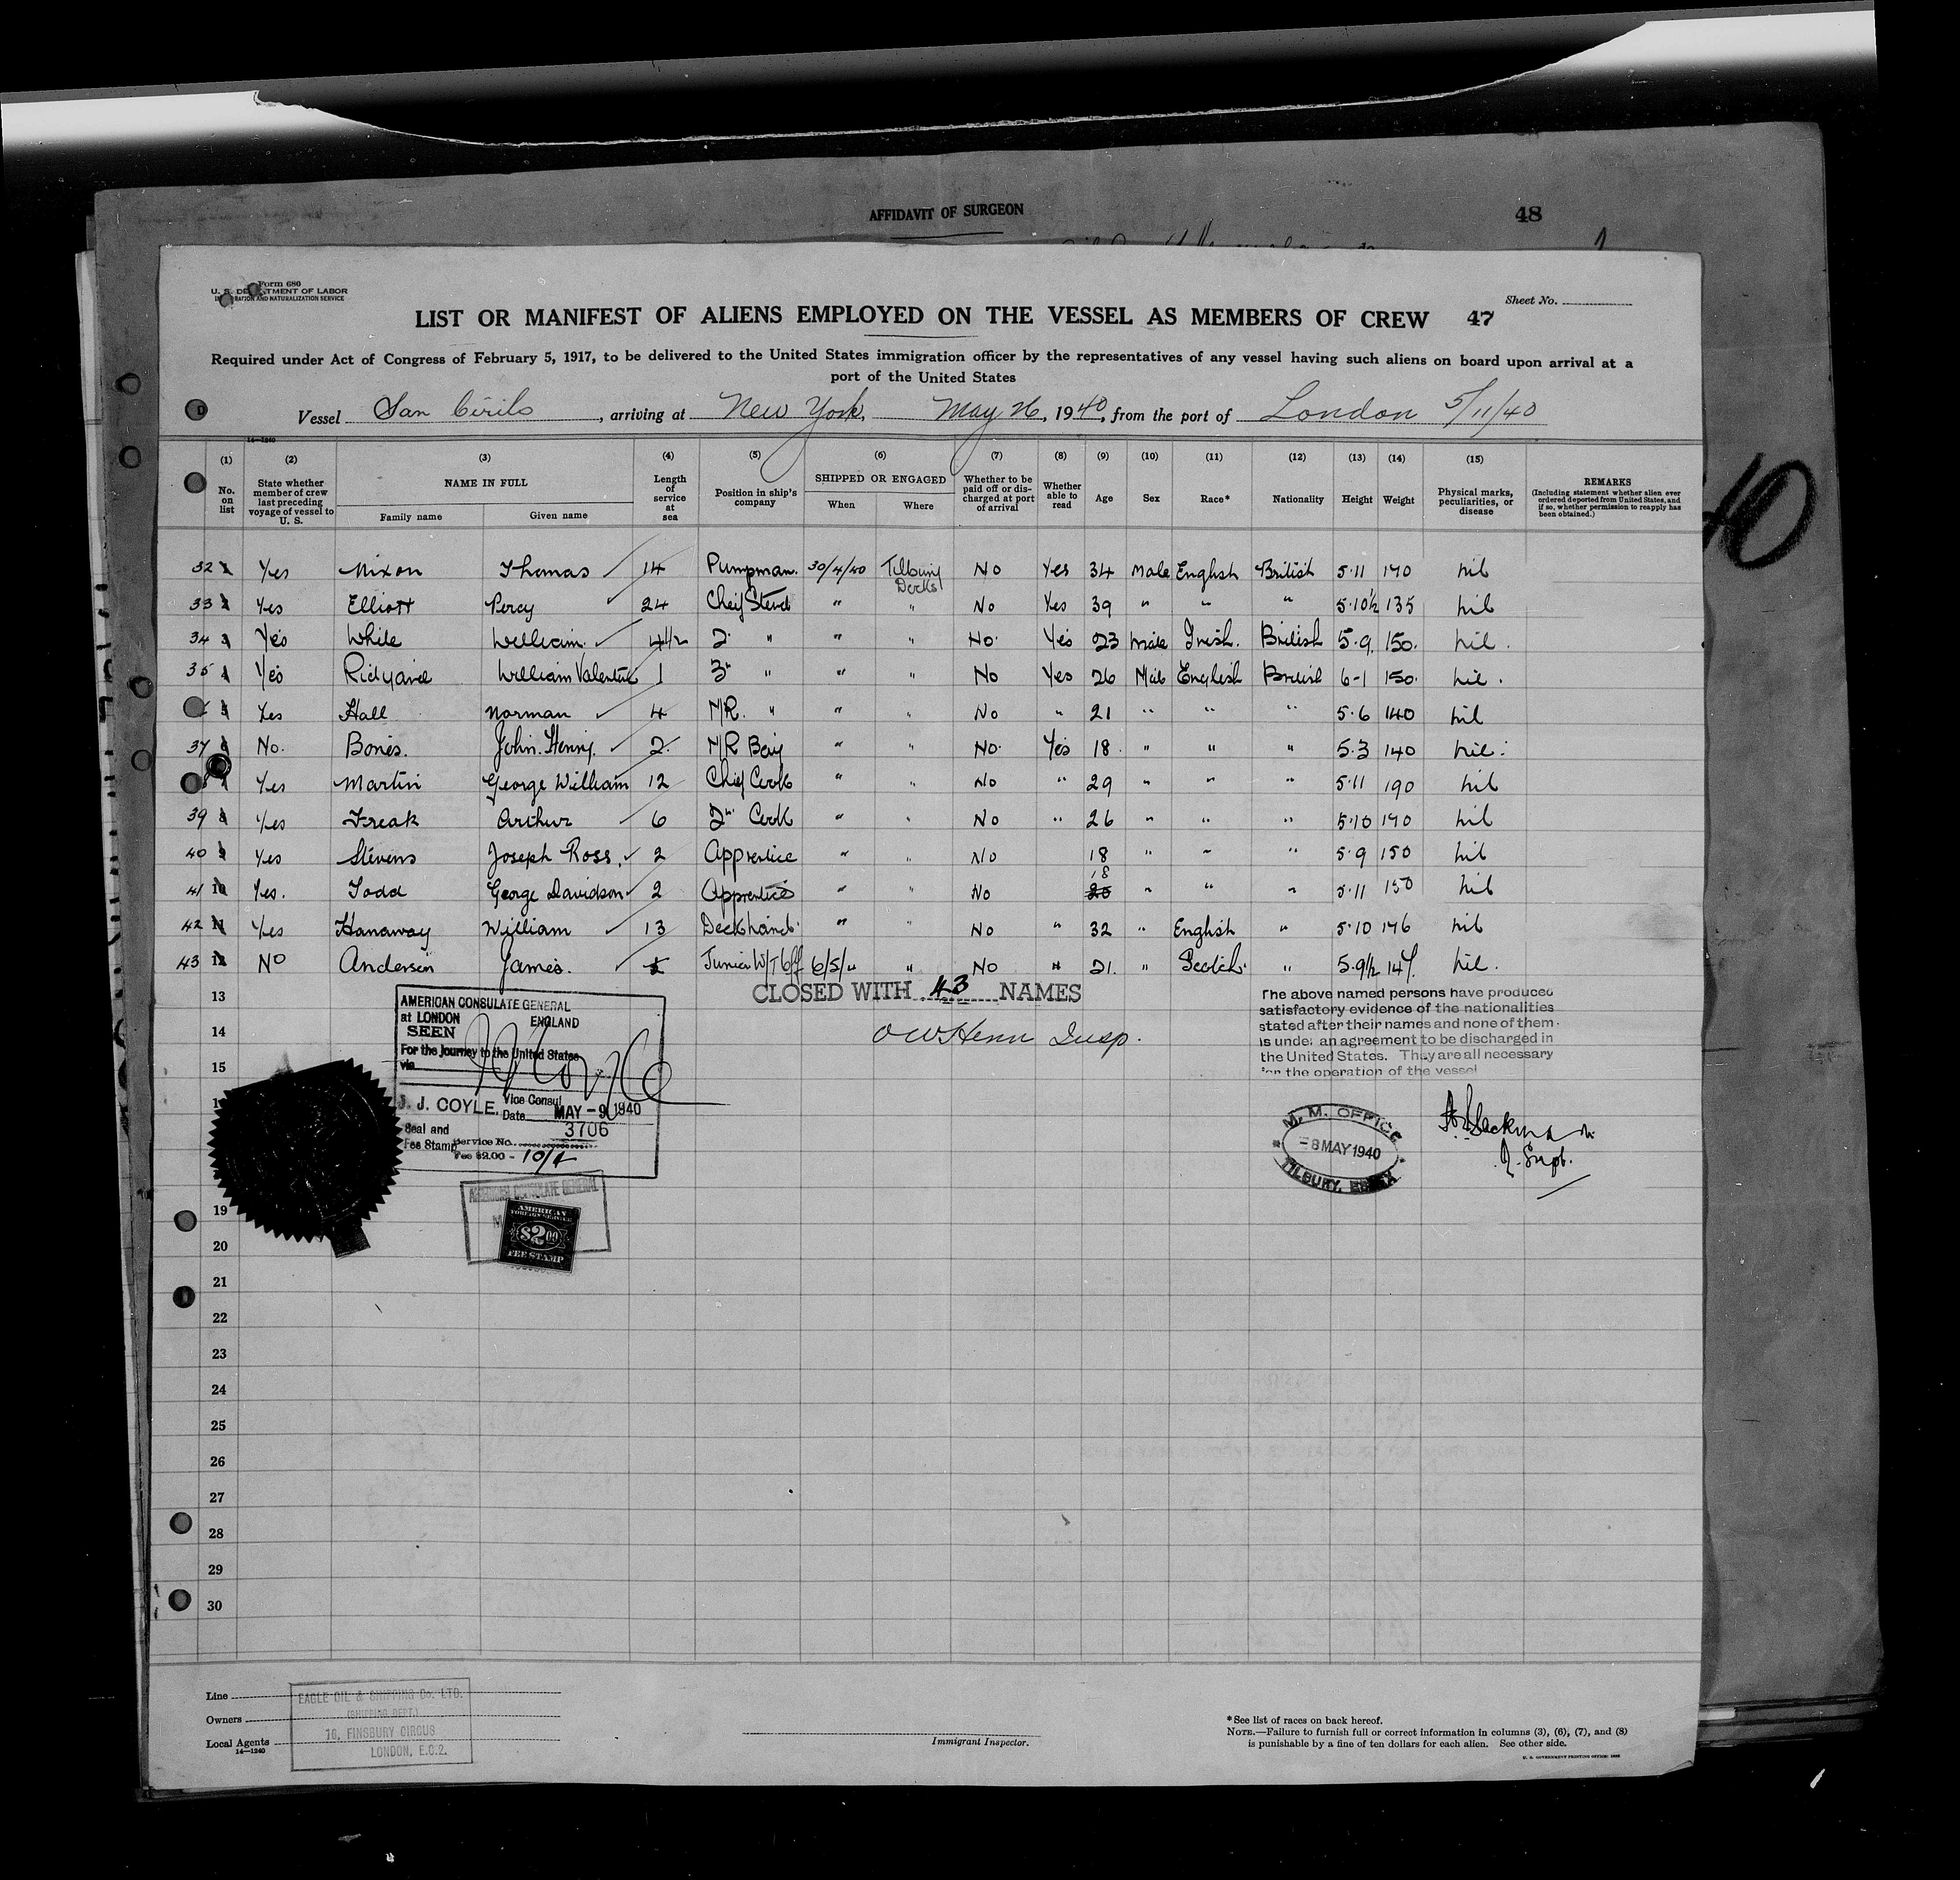 AFFIDAVIT OF SURGEON 48
Form 680
U. S. DE TMENT OF LABOR
RATION AND NATURALIZATION SERVICE
Sheet No.
LIST OR MANIFEST OF ALIENS EMPLOYED ON THE VESSEL AS MEMBERS OF CREW 47
Required under Act of Congress of February 5, 1917, to be delivered to the United States immigration officer by the representatives of any vessel having such aliens on board upon arrival at a
port of the United States
Vessel San Cirilo, arriving at New York, May 26, 1940, from the port of London 5/11/40
14—1240
(1) (2) (3) (4) (5) (6) (7) (8) (9) (10) (11) (12) (13) (14) (15)
No. on list
State whether member of crew last preceding voyage of vessel to U. S.
NAME IN FULL
Family name Given name
Length of service at sea
Position in ship's company
SHIPPED OR ENGAGED
When Where
Whether to be paid off or discharged at port of arrival
Whether able to read
Age Sex Race* Nationality Height Weight
Physical marks, peculiarities, or disease
REMARKS
(Including statement whether alien ever ordered deported from United States, and if so, whether permission to reapply has been obtained.)
32 Yes Nixon Thomas 14 Pumpman. 30/4/40 Tilbury Docks No Yes 34 Male English British 5·11 170 nil
33 Yes Elliott Percy 24 Cheif Stewd " " No Yes 39 " " " 5·10½ 135 nil
34 Yes White William. 4½ 2. " " " No. Yes 23 Male Irish. British 5·9. 150. nil.
35 Yes Ridyard William Valentine 1 3" " " " No Yes 26 Male English British 6-1 150. nil.
Yes Hall Norman 4 M/R. " " " No " 21 " " " 5·6 140 nil
37 No. Bones. John. Henry. 2. M/R Boy " " No. Yes 18. " " " 5·3 140 nil.
Yes Martin George William 12 Chief Cook " " No " 29 " " " 5·11 190 nil
39 Yes Freak Arthur 6 2nd Cook " " No " 26 " " " 5·10 170 nil
40 Yes Stevens Joseph Ross. 2 Apprentice " " No 18 " " " 5·9 150 nil
41 10 Yes. Todd George Davidson 2 Apprentice " " No 18 20 " " " 5·11 150 nil
42 11 Yes Hanaway William 13 Deckhand. " " No " 32 " English " 5·10 176 nil
43 12 No Anderson James. Junior W/T Off 6/5/" " No " 21. " Scotch. " 5·9½ 147. nil.
CLOSED WITH 43 NAMES
OW Henn Insp.
AMERICAN CONSULATE GENERAL
at LONDON ENGLAND
SEEN
For the journey to the United States
via
J. J. COYLE, Vice Consul
Date MAY -9 1940
Seal and Fee Stamp
Service No. 3706
Fee $2.00 - 10/4
AMERICAN CONSULATE GENERAL
AMERICAN
FOREIGN SERVICE
$2.00
FEE STAMP
The above named persons have produced
satisfactory evidence of the nationalities
stated after their names and none of them
is under an agreement to be discharged in
the United States. They are all necessary
for the operation of the vessel
M. M. OFFICE
-8 MAY 1940
TILBURY, ESSEX
13
14
15
19
20
21
22
23
24
25
26
27
28
29
30
Line
Owners
Local Agents
14—1240
EAGLE OIL & SHIPPING Co. LTD.
(SHIPPING DEPT.)
16, FINSBURY CIRCUS
LONDON, E.C.2.
Immigrant Inspector.
*See list of races on back hereof.
NOTE.—Failure to furnish full or correct information in columns (3), (6), (7), and (8)
is punishable by a fine of ten dollars for each alien. See other side.
U. S. GOVERNMENT PRINTING OFFICE: